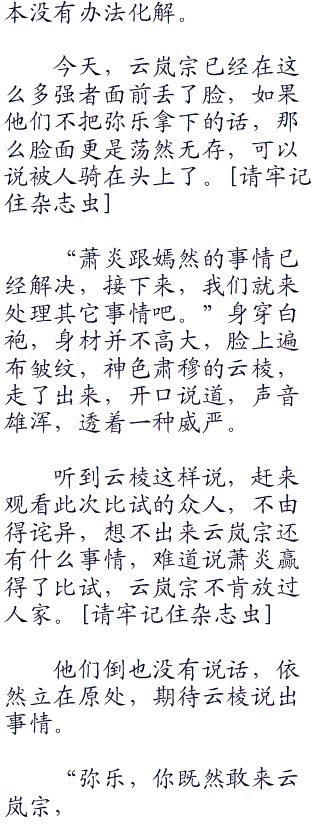 本没有办法化解。
今天，云岚宗已经在这
么多强者面前丢了脸，如果
他们不把弥乐拿下的话，那
么脸面更是荡然无存，可以
说被人骑在头上了。[请牢记
住杂志虫]
“萧炎跟嫣然的事情已
经解决，接下来，我们就来
处理其它事情吧。”身穿白
袍，身材并不高大，脸上遍
布皱纹，神色肃穆的云棱，
走了出来，开口说道，声音
雄浑，透着一种威严。
听到云棱这样说，赶来
观看此次比试的众人，不由
得诧异，想不出来云岚宗还
有什么事情，难道说萧炎赢
得了比试，云岚宗不肯放过
人家。[请牢记住杂志虫]
他们倒也没有说话，依
然立在原处，期待云棱说出
事情。
“弥乐，你既然敢来云
岚宗，